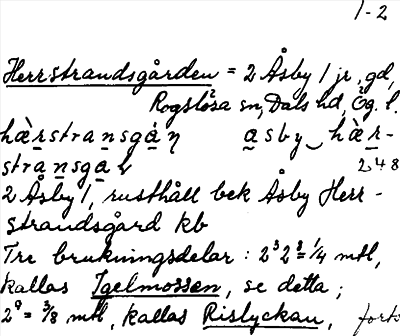 1-2
Herrstrandsgården = 2 Åsby 1 jr, gd,
Rogslösa sn, Dals hd, Ög. l.
hæ̀rstransgáṇ asby‿hæ̀r-
stransgaḷ 248
2 Åsby 1, rusthåll bek Åsby Herr-
strandsgård kb
Tre brukningsdelar: 2³2⁸=1/4 mtl,
kallas Igelmossen, se detta;
2⁹=3/8 mtl, kallas Rislyckan, forts